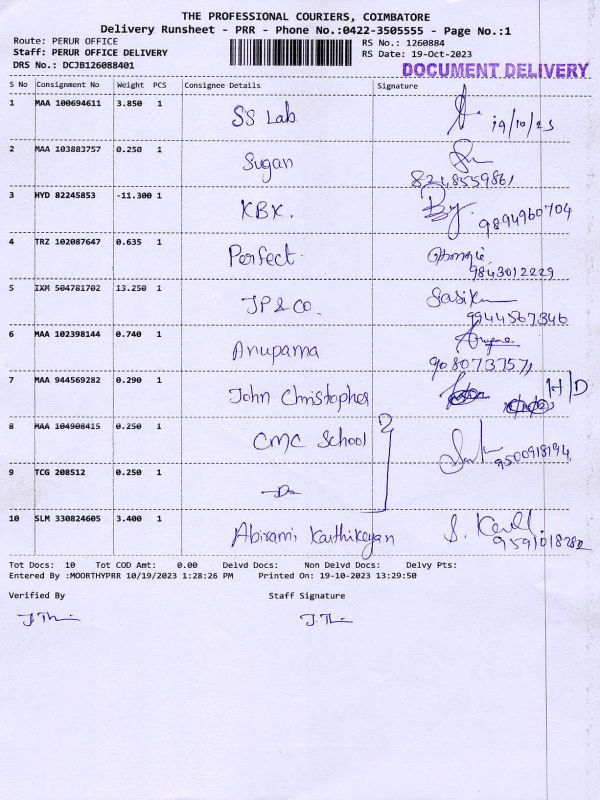 THE PROFESSIONAL COURIERS, COIMBATORE
Delivery Runsheet - PRR - Phone No.:0422-3505555 - Page No.:1
Route: PERUR OFFICE RS No.: 1260884
Staff: PERUR OFFICE DELIVERY RS Date: 19-Oct-2023
DRS No.: DCJB126088401 DOCUMENT DELIVERY
S No Consignment No Weight PCS Consignee Details Signature
1 MAA 100694611 3.850 1 SS Lab 19/10/23
2 MAA 103883757 0.250 1 Sugan
8248559861
3 HYD 82245853 -11.300 1 KBX. 9894960704
4 TRZ 102087647 0.635 1 Perfect
9843012229
5 IXM 504781702 13.250 1 JP & CO. Sasik
9944567346
6 MAA 102398144 0.740 1 Anupama
9080737571
7 MAA 944569282 0.290 1 John Christopher H/D
8 MAA 104908415 0.250 1 CMC School 9500918194
9 TCG 208512 0.250 1 -Do-
10 SLM 330824605 3.400 1 Abirami Karthikeyan
9591018282
Tot Docs: 10 Tot COD Amt: 0.00 Delvd Docs: Non Delvd Docs: Delvy Pts:
Entered By :MOORTHYPRR 10/19/2023 1:28:26 PM Printed On: 19-10-2023 13:29:50
Verified By Staff Signature